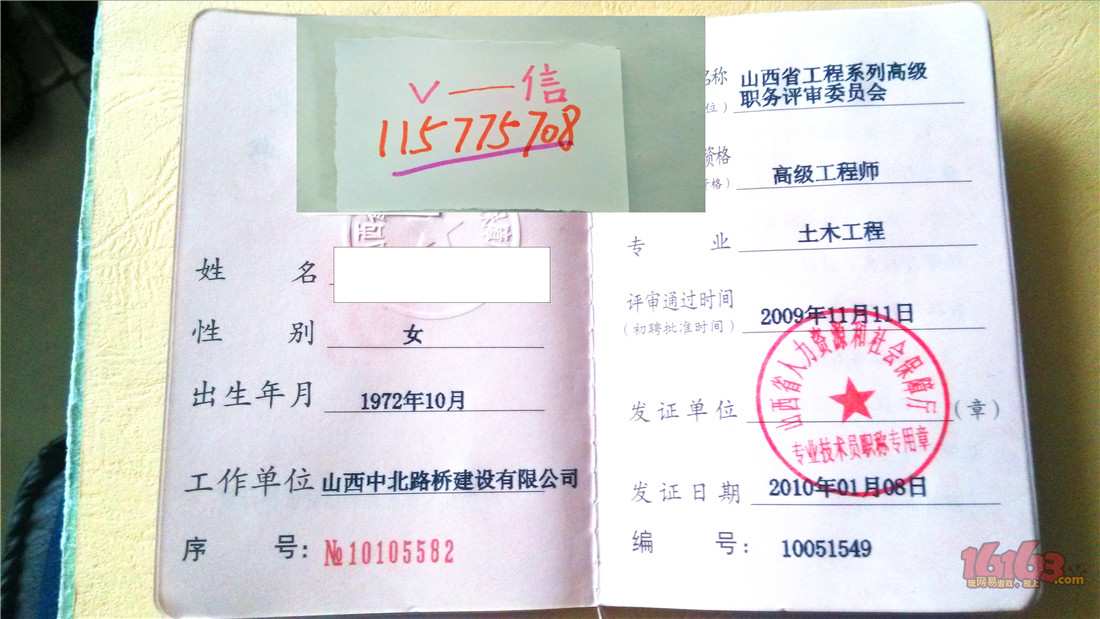 V — 信
115775708
姓 名
性 别 女
出生年月 1972年10月
工作单位 山西中北路桥建设有限公司
序 号: №10105582
名称 山西省工程系列高级
位) 职务评审委员会
资格
格) 高级工程师
专 业 土木工程
评审通过时间
(初聘批准时间) 2009年11月11日
山西省人力资源和社会保障厅
专业技术员职称专用章
发证单位 (章)
发证日期 2010年01月08日
编 号: 10051549
16163
.com